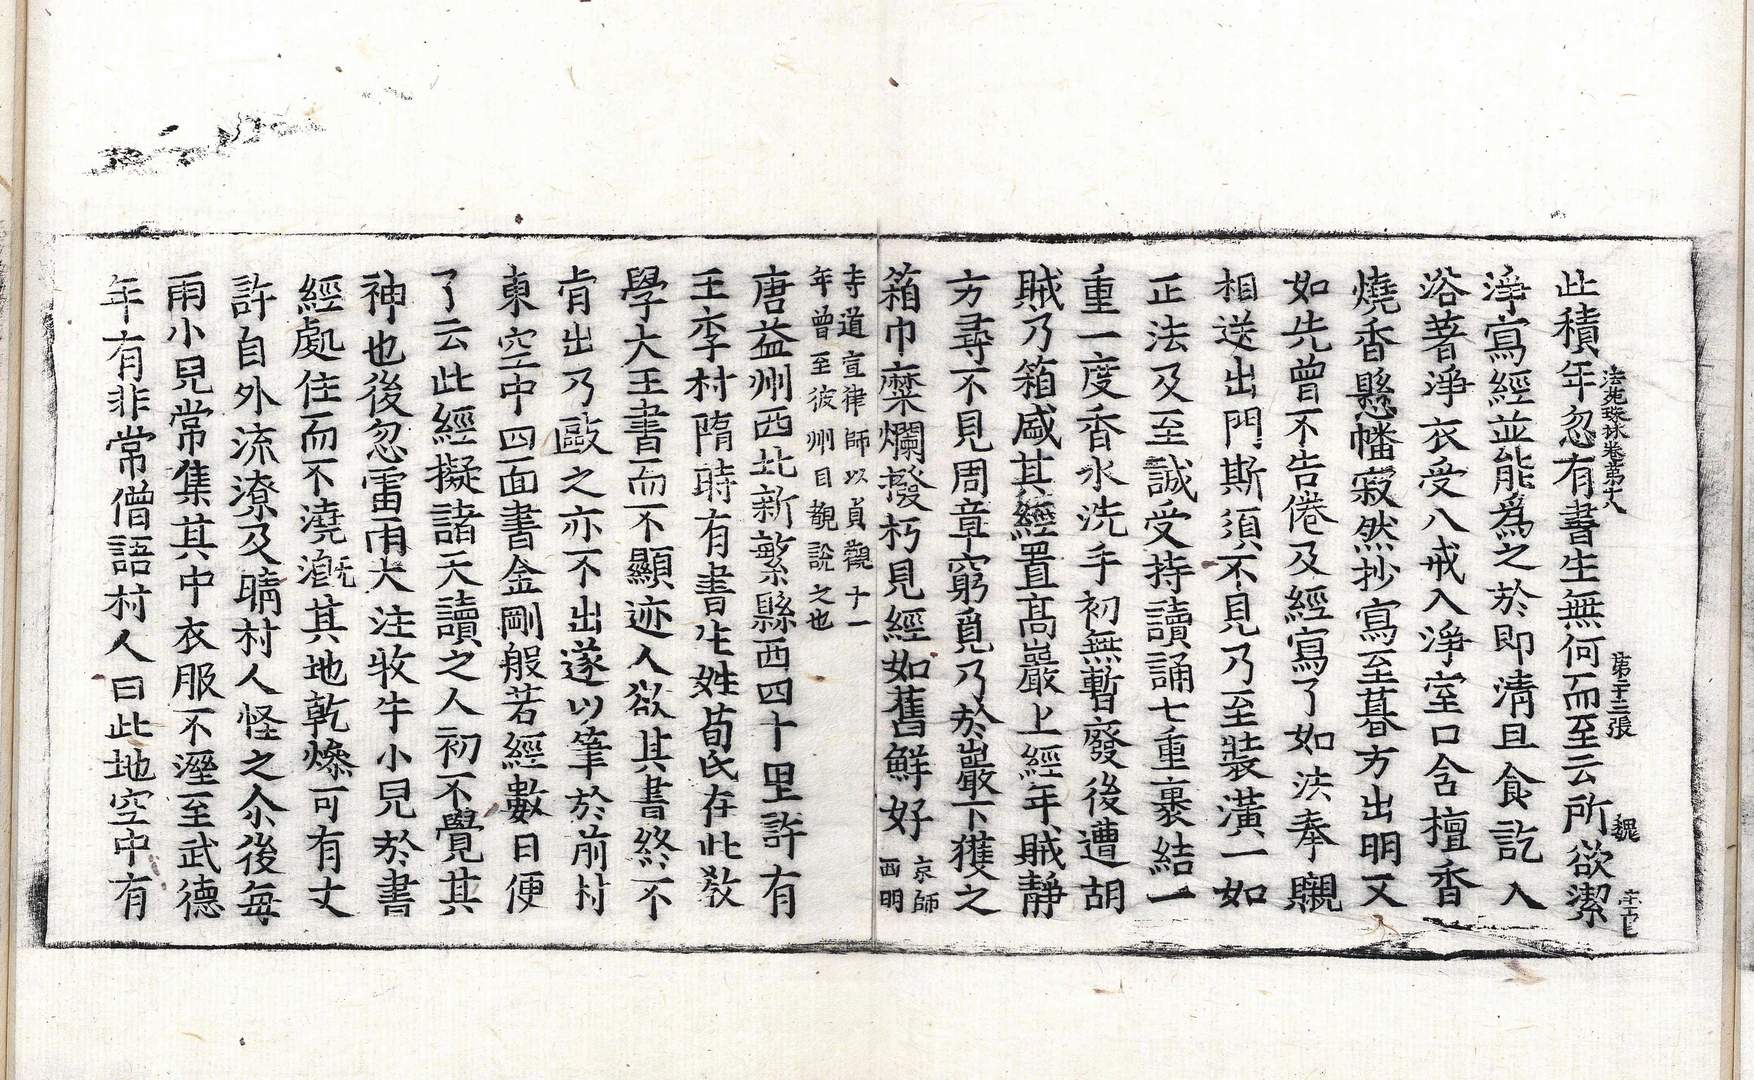 法苑珠林卷第十八 第二十三張 魏
此積年忽有書生無何而至云所欲潔
淨寫經並能爲之於即清旦食訖入
浴著淨衣受八戒入淨室口含檀香
燒香懸幡寂然抄寫至暮方出明又
如先曾不告倦及經寫了如法奉䞋
相送出門斯須不見乃至裝潢一如
正法及至誠受持讀誦七重裹結一
重一度香水洗手初無暫廢後遭胡
賊乃箱盛其經置高巖上經年賊靜
方尋不見周章窮覓乃於巖下獲之
箱巾糜爛撥朽見經如舊鮮好京師西明
寺道宣律師以貞觀十一
年曾至彼州目覩說之也
唐益州西北新繁縣西四十里許有
王李村隋時有書生姓荀氏在此教
學大王書而不顯迹人欲其書終不
肯出乃敺之亦不出遂以筆於前村
東空中四面書金剛般若經數日便
了云此經擬諸天讀之人初不覺其
神也後忽雷雨大注牧牛小兒於書
經處住而不澆溉其地乾燥可有丈
許自外流潦及晴村人怪之尒後每
雨小兒常集其中衣服不溼至武德
年有非常僧語村人曰此地空中有